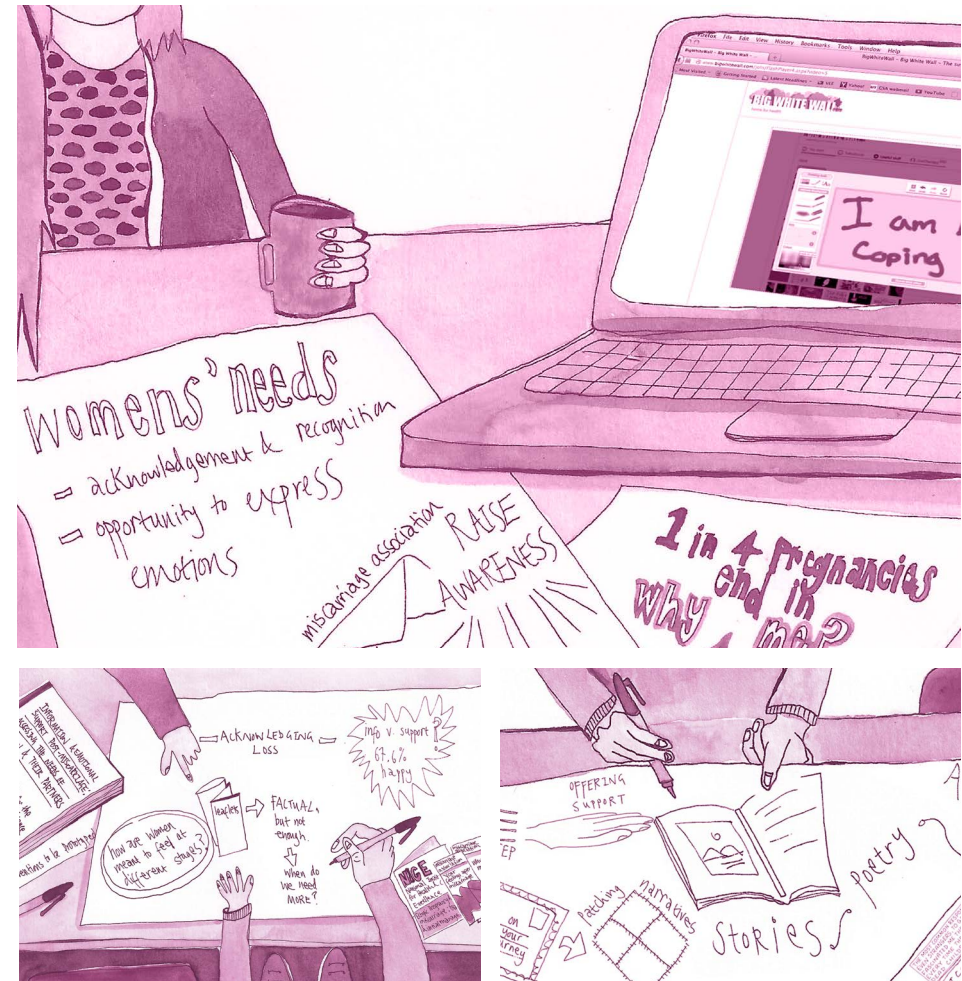 Firefox File Edit View History Bookmarks Tools Window Help
BigWhiteWall - Big White Wall
BigWhiteWall - Big White Wall - The
Most Visited Getting Started Latest Headlines Yahoo! YouTube
BIG WHITE WALL
I am
Coping
womens' needs
acknowledgement & recognition
opportunity to express
emotions
miscarriage association
RAISE
AWARENESS
1 in 4 pregnancies
end in
why me?
INFORMATION & EMOTIONAL
SUPPORT POST-MISCARRIAGE:
THE NEEDS OF
& THEIR PARTNERS
to be prototyped
ACKNOWLEDGING
LOSS
info v. support?
67.6%
happy
!
leaflets
FACTUAL,
but not
enough.
when do
we need
MORE?
how are women
meant to feel at
different stages?
NICE
OFFERING
SUPPORT
EP
on
your
patching
narratives
stories
poetry
A